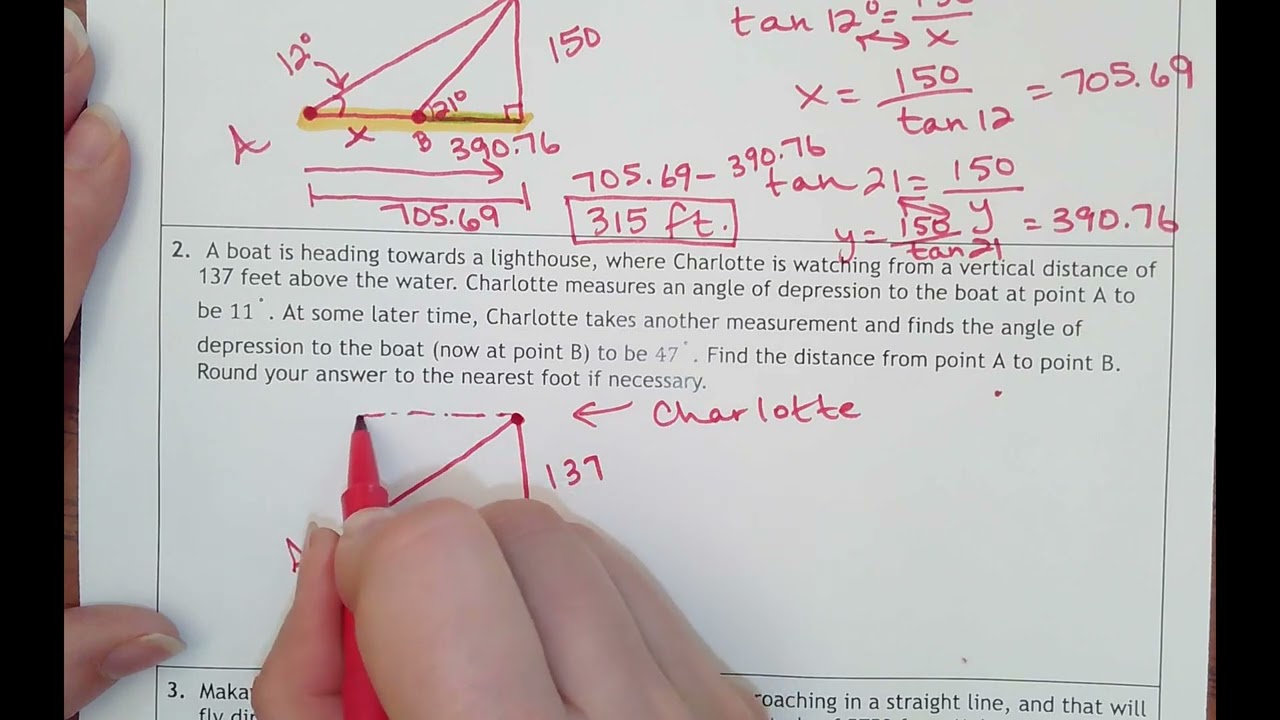 tan 12°=
x
150
12°
x = 150/tan 12 = 705.69
21°
A
x
B
390.76
705.69 - 390.76
tan 21 = 150/y
705.69
315 ft.
y = 150/tan 21 = 390.76
2. A boat is heading towards a lighthouse, where Charlotte is watching from a vertical distance of
137 feet above the water. Charlotte measures an angle of depression to the boat at point A to
be 11°. At some later time, Charlotte takes another measurement and finds the angle of
depression to the boat (now at point B) to be 47°. Find the distance from point A to point B.
Round your answer to the nearest foot if necessary.
← Charlotte
137
A
3. roaching in a straight line, and that will
fly